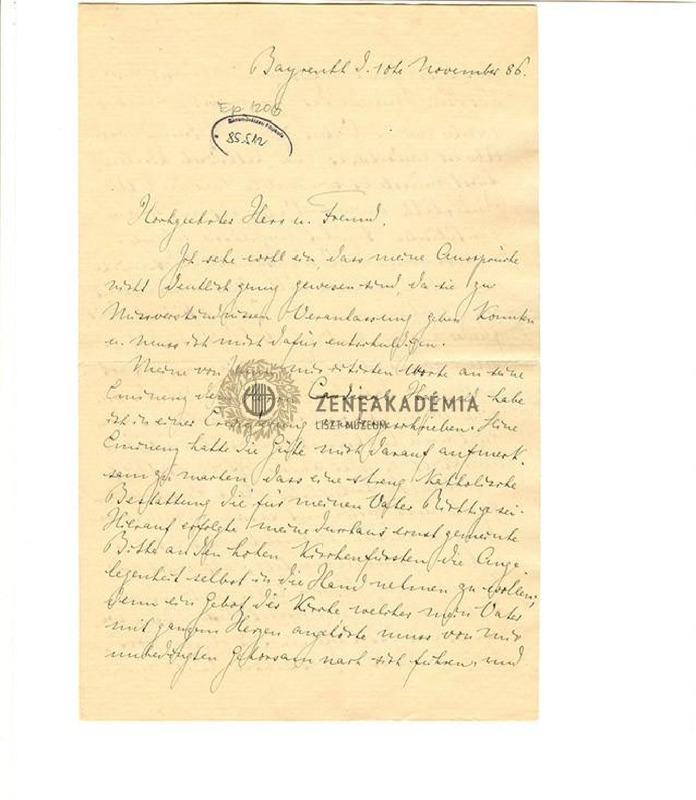 Bayreuth d. 10te November 86.
Ep 1206
Zeneművészeti Főiskola
85.512
Hochgeehrter Herr u. Freund,
Ich sehe wohl ein, dass meine Aussprüche
nicht deutlich genug gewesen sind, da sie zu
Missverständnissen Veranlassung geben konnten
u. muss ich mich dafür entschuldigen.
Meine von Ihnen mir citirten Worte an seine
Eminenz den Cardinal habe
ich in einer Erwiederung geschrieben. Seine
Eminenz hatte die Güte mich darauf aufmerk-
sam zu machen, dass eine streng katholische
Bestattung die für meinen Vater Richtige sei.
Hierauf erfolgte meine durchaus ernst gemeinte
Bitte an den hohen Kirchenfürsten die Ange-
legenheit selbst in die Hand nehmen zu wollen;
denn ein Gebot der Kirche welcher mein Vater
mit ganzem Herzen angehörte muss von mir
unbedingten Gehorsam nach sich führen, und
ZENEAKADÉMIA
LISZT MÚZEUM